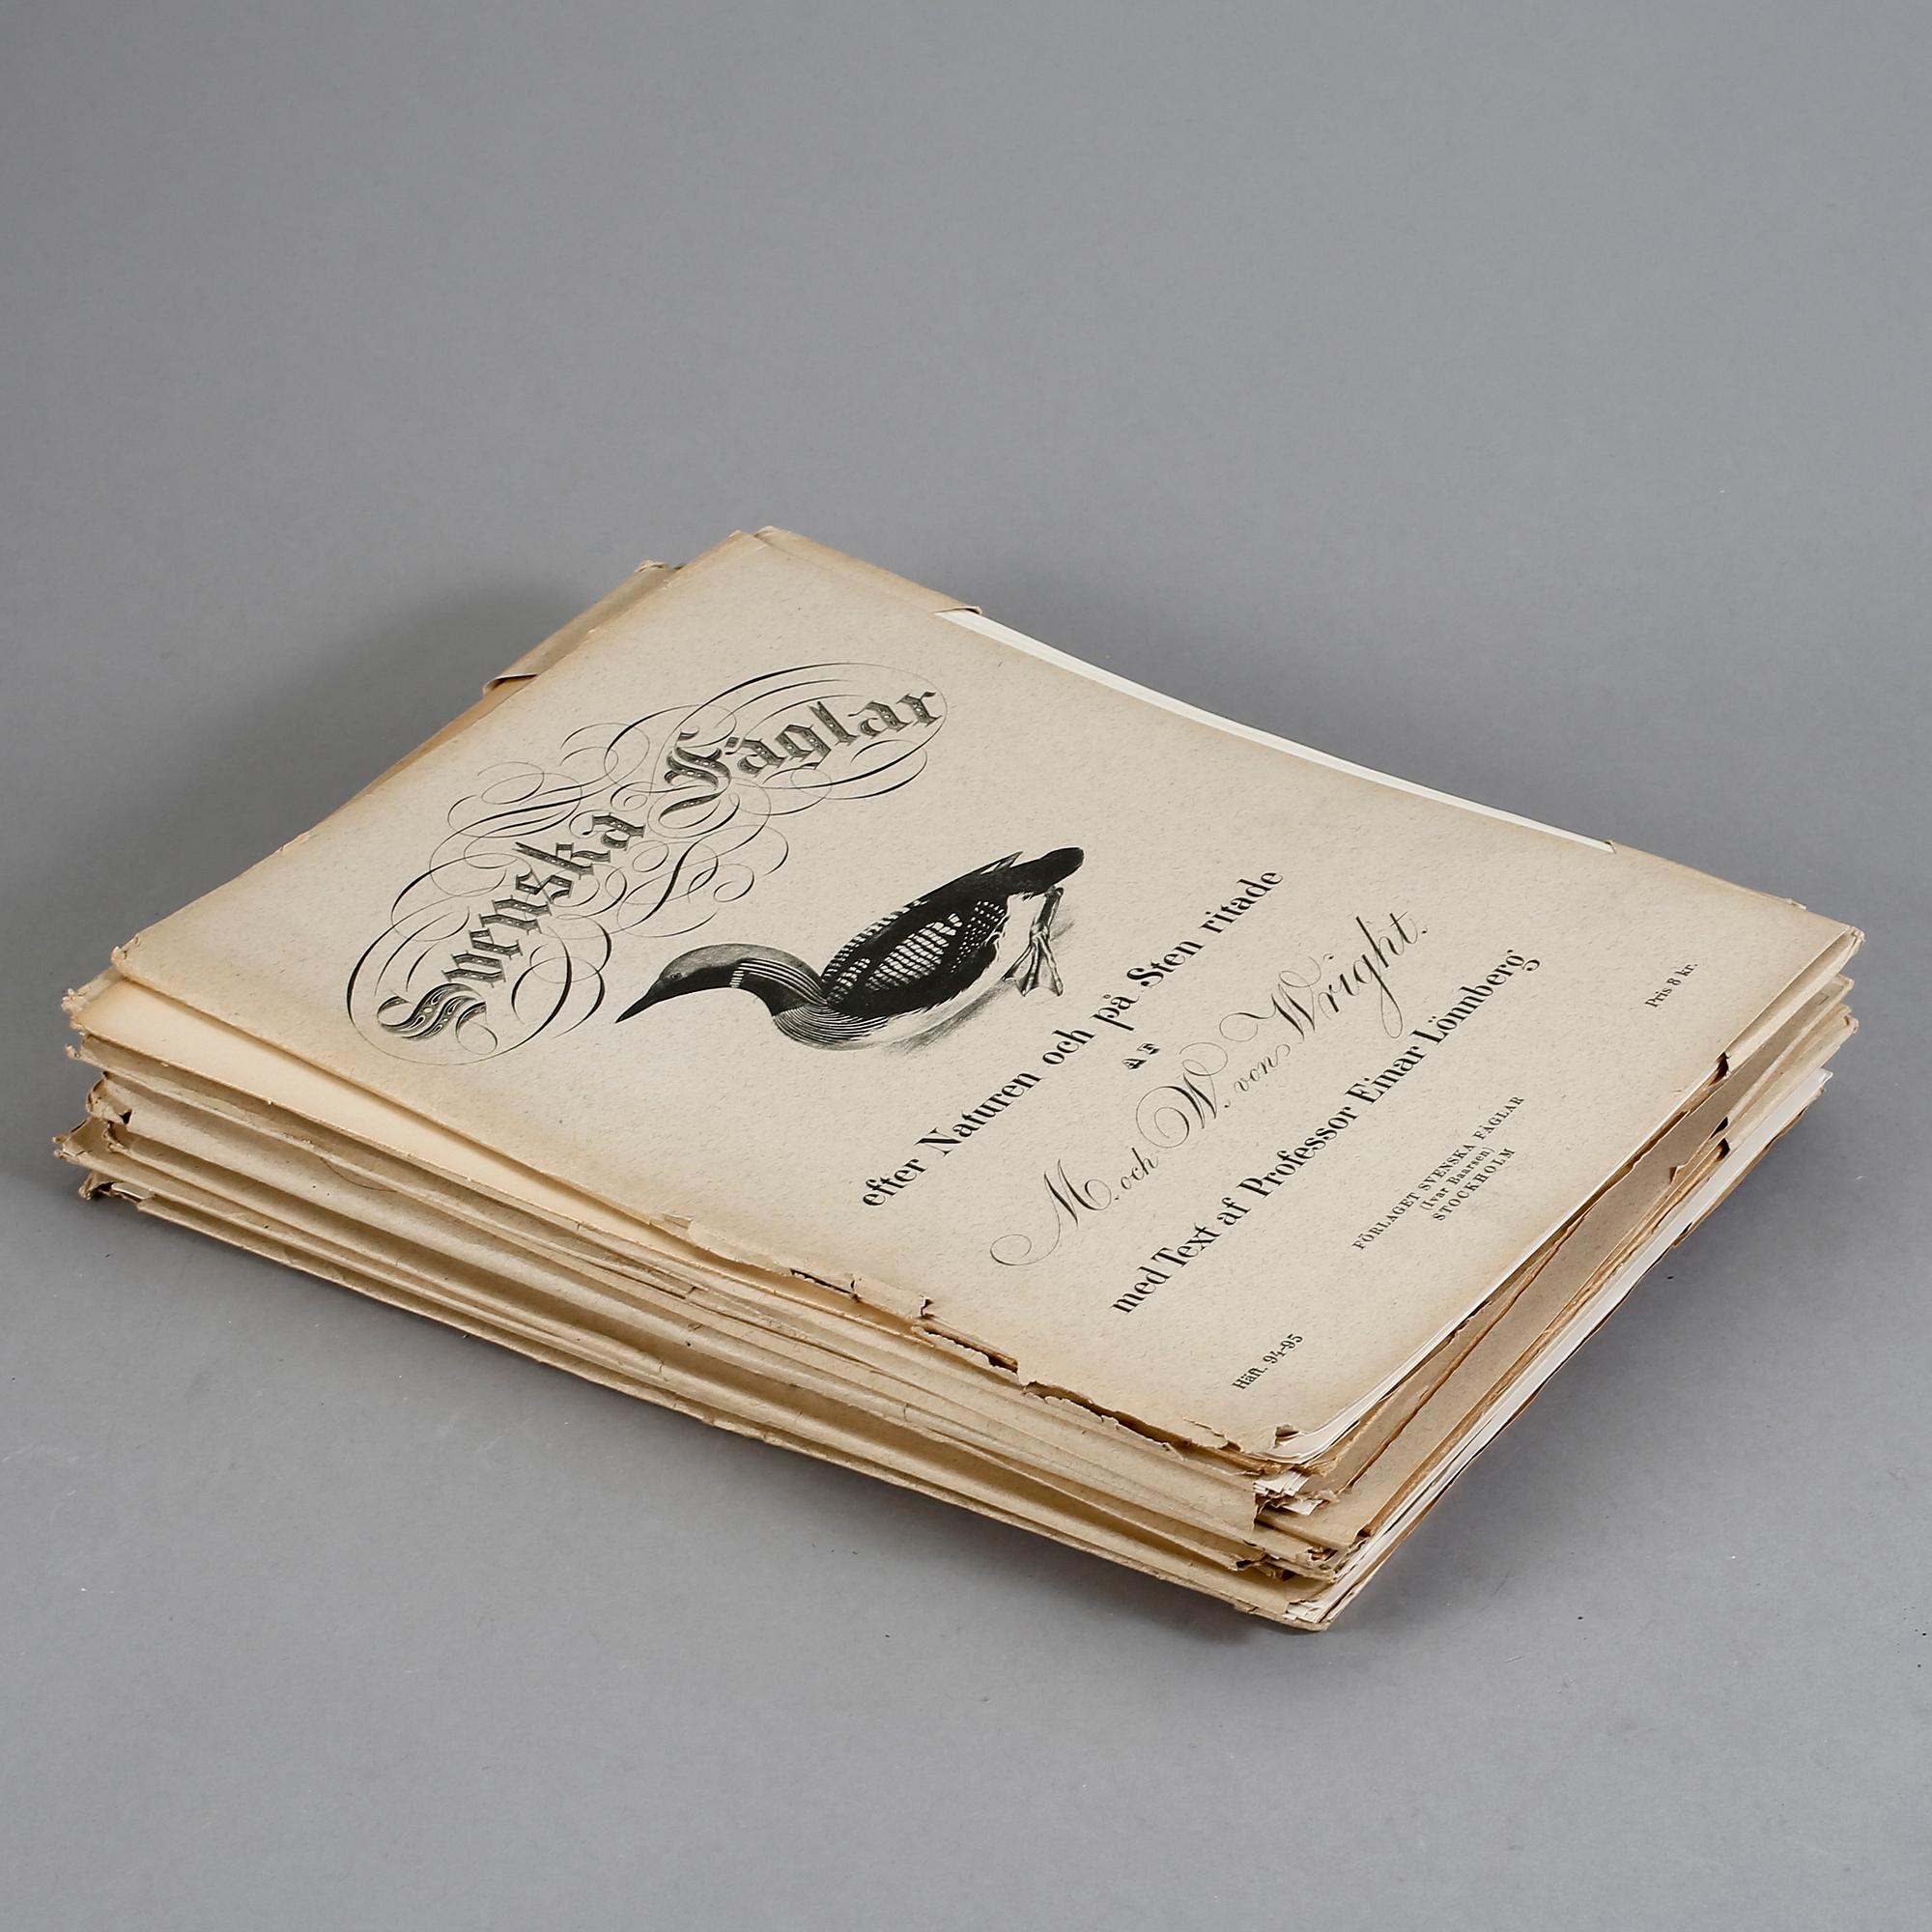 Svenska Fåglar
efter Naturen och på Sten ritade
AF
M. och W. von Wright.
med Text af Professor Einar Lönnberg
FÖRLAGET SVENSKA FÅGLAR
(Ivar Baarsen)
STOCKHOLM
Häft. 94-95
Pris 8 kr.